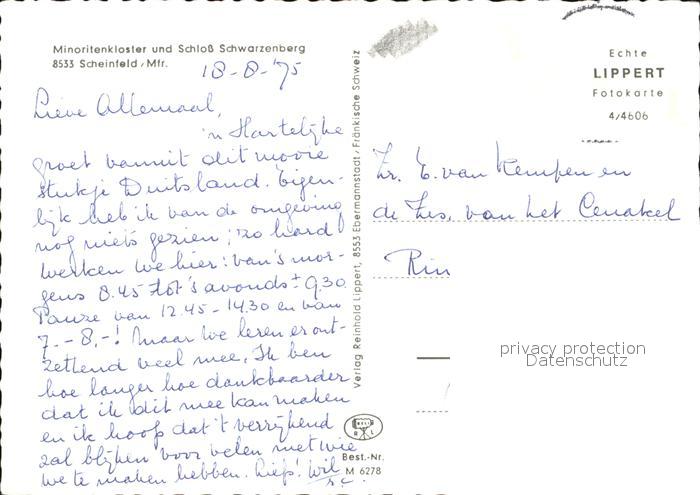 Minoritenkloster und Schloß Schwarzenberg
8533 Scheinfeld/Mfr.
18-8-'75
Lieve Allemaal,
'n Hartelijke
groet vanuit dit mooie
stukje Duitsland. Eigen-
lijk heb ik van de omgeving
nog niets gezien; zo hard
werken we hier: van 's mor-
gens 8.45 tot 's avonds ± 9.30.
Pauze van 12.45 - 14.30 en van
7.- - 8.-! Maar we leren er ont-
zettend veel mee. Ik ben
hoe langer hoe dankbaarder
dat ik dit mee kan maken
en ik hoop dat 't verrijkend
zal blijken voor velen met wie
we te maken hebben. Liefs! Wil
Verlag Reinhold Lippert, 8553 Ebermannstadt/Fränkische Schweiz
Best.-Nr.
M 6278
Echte
LIPPERT
Fotokarte
4/4606
Zr. E. van Kempen en
de Zrs. van het Cenakel
Rin
privacy protection
Datenschutz